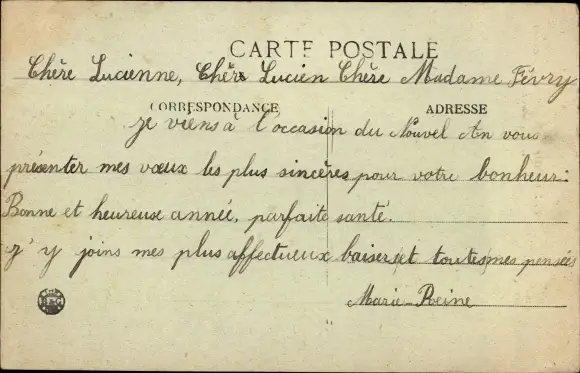 CARTE POSTALE
Chère Lucienne, Chère Lucien Chère Madame Févry
CORRESPONDANCE ADRESSE
je viens à l'occasion du Nouvel An vous
présenter mes vœux les plus sincères pour votre bonheur.
Bonne et heureuse année, parfaite santé.
j'y joins mes plus affectueux baisers et toutes mes pensées
Marie-Reine